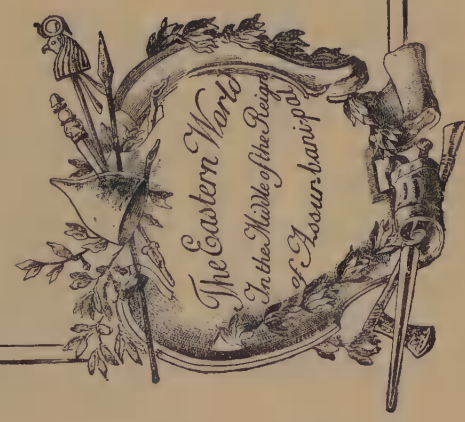 The Eastern World
In the Middle of the Reign
of Assur-bani-pal